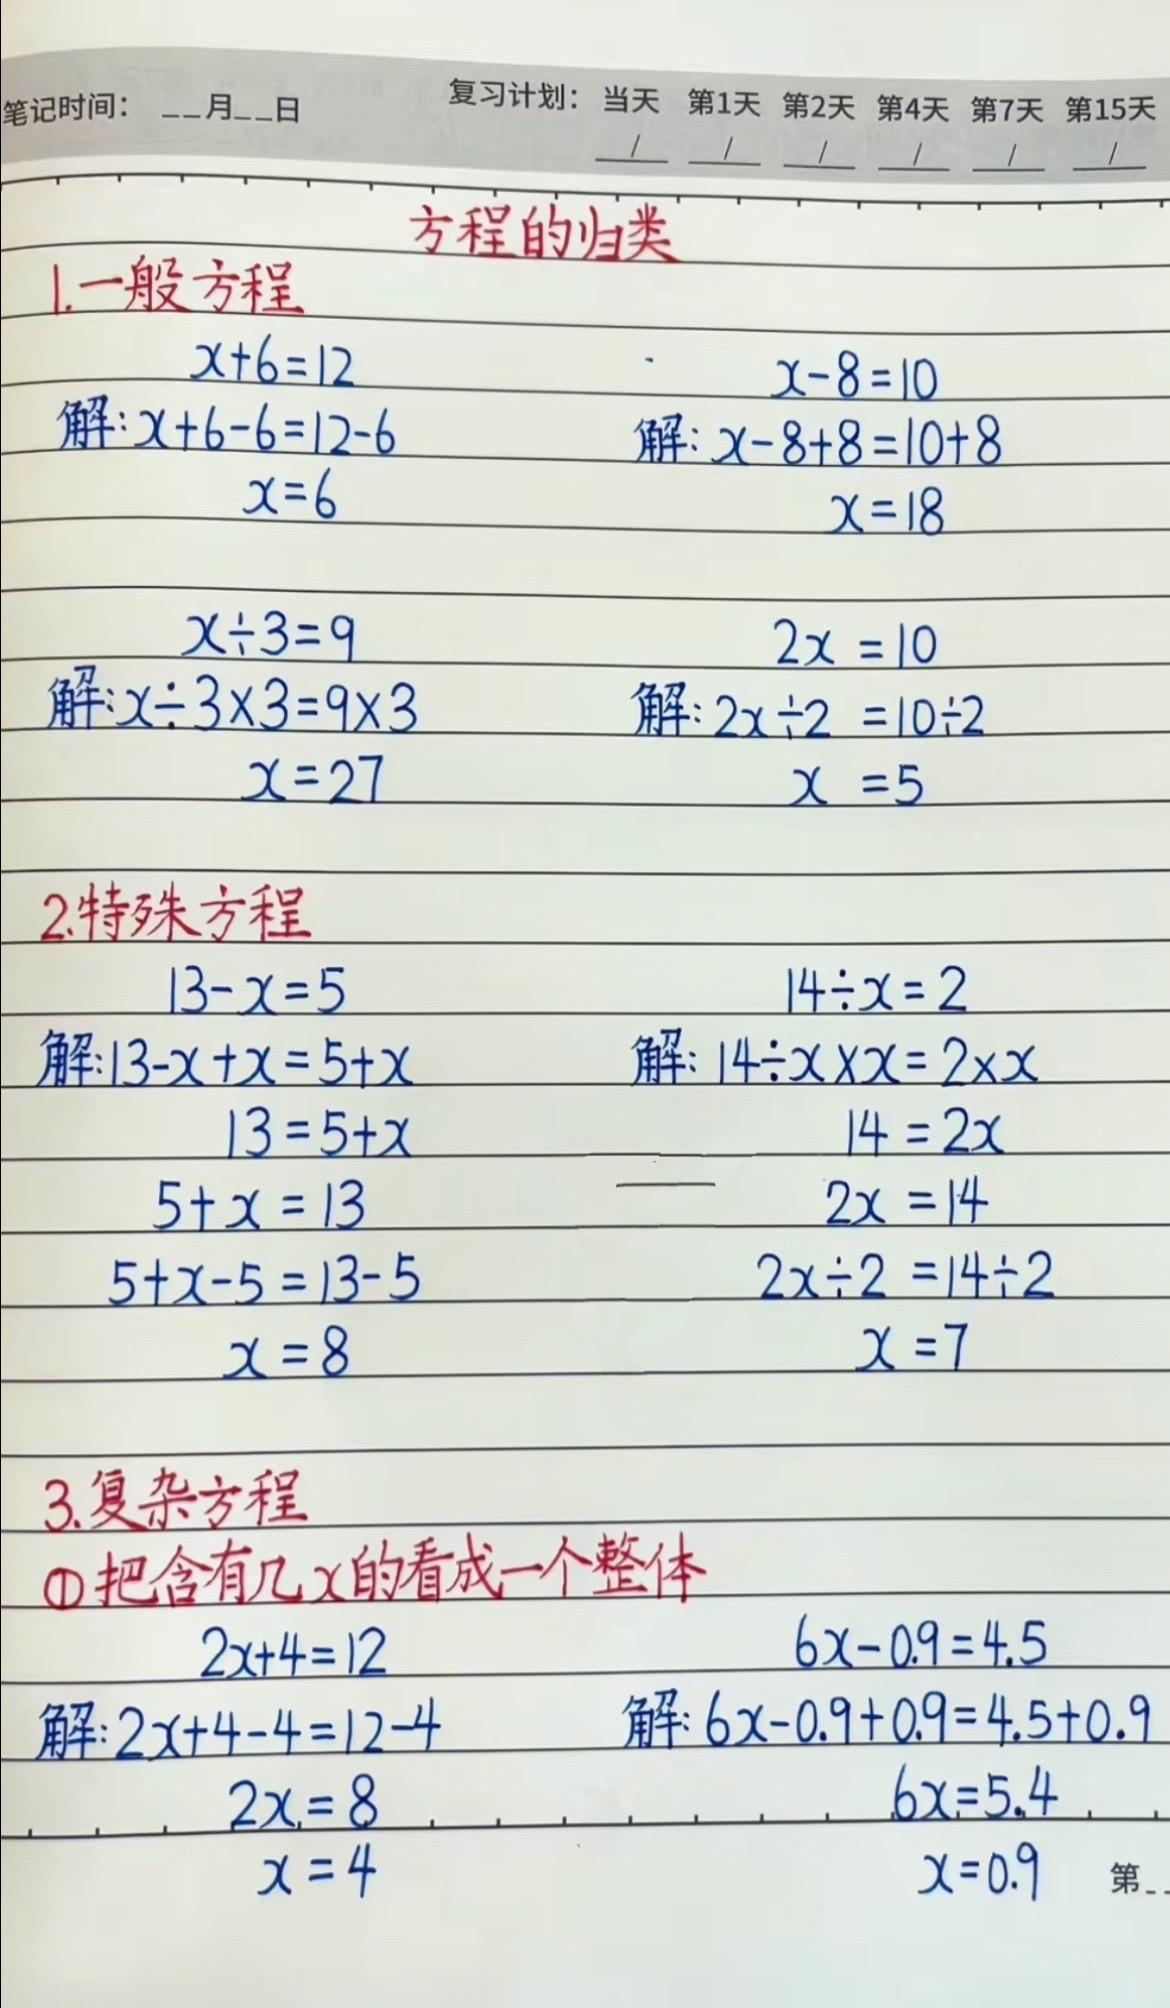 笔记时间: __月__日 复习计划: 当天 第1天 第2天 第4天 第7天 第15天
/ / / / / /
方程的归类
1.一般方程
x+6=12 x-8=10
解:x+6-6=12-6 解:x-8+8=10+8
x=6 x=18
x÷3=9 2x=10
解:x÷3×3=9×3 解:2x÷2=10÷2
x=27 x=5
2.特殊方程
13-x=5 14÷x=2
解:13-x+x=5+x 解:14÷x×x=2×x
13=5+x 14=2x
5+x=13 2x=14
5+x-5=13-5 2x÷2=14÷2
x=8 x=7
3.复杂方程
①把含有几x的看成一个整体
2x+4=12 6x-0.9=4.5
解:2x+4-4=12-4 解:6x-0.9+0.9=4.5+0.9
2x=8 6x=5.4
x=4 x=0.9 第__